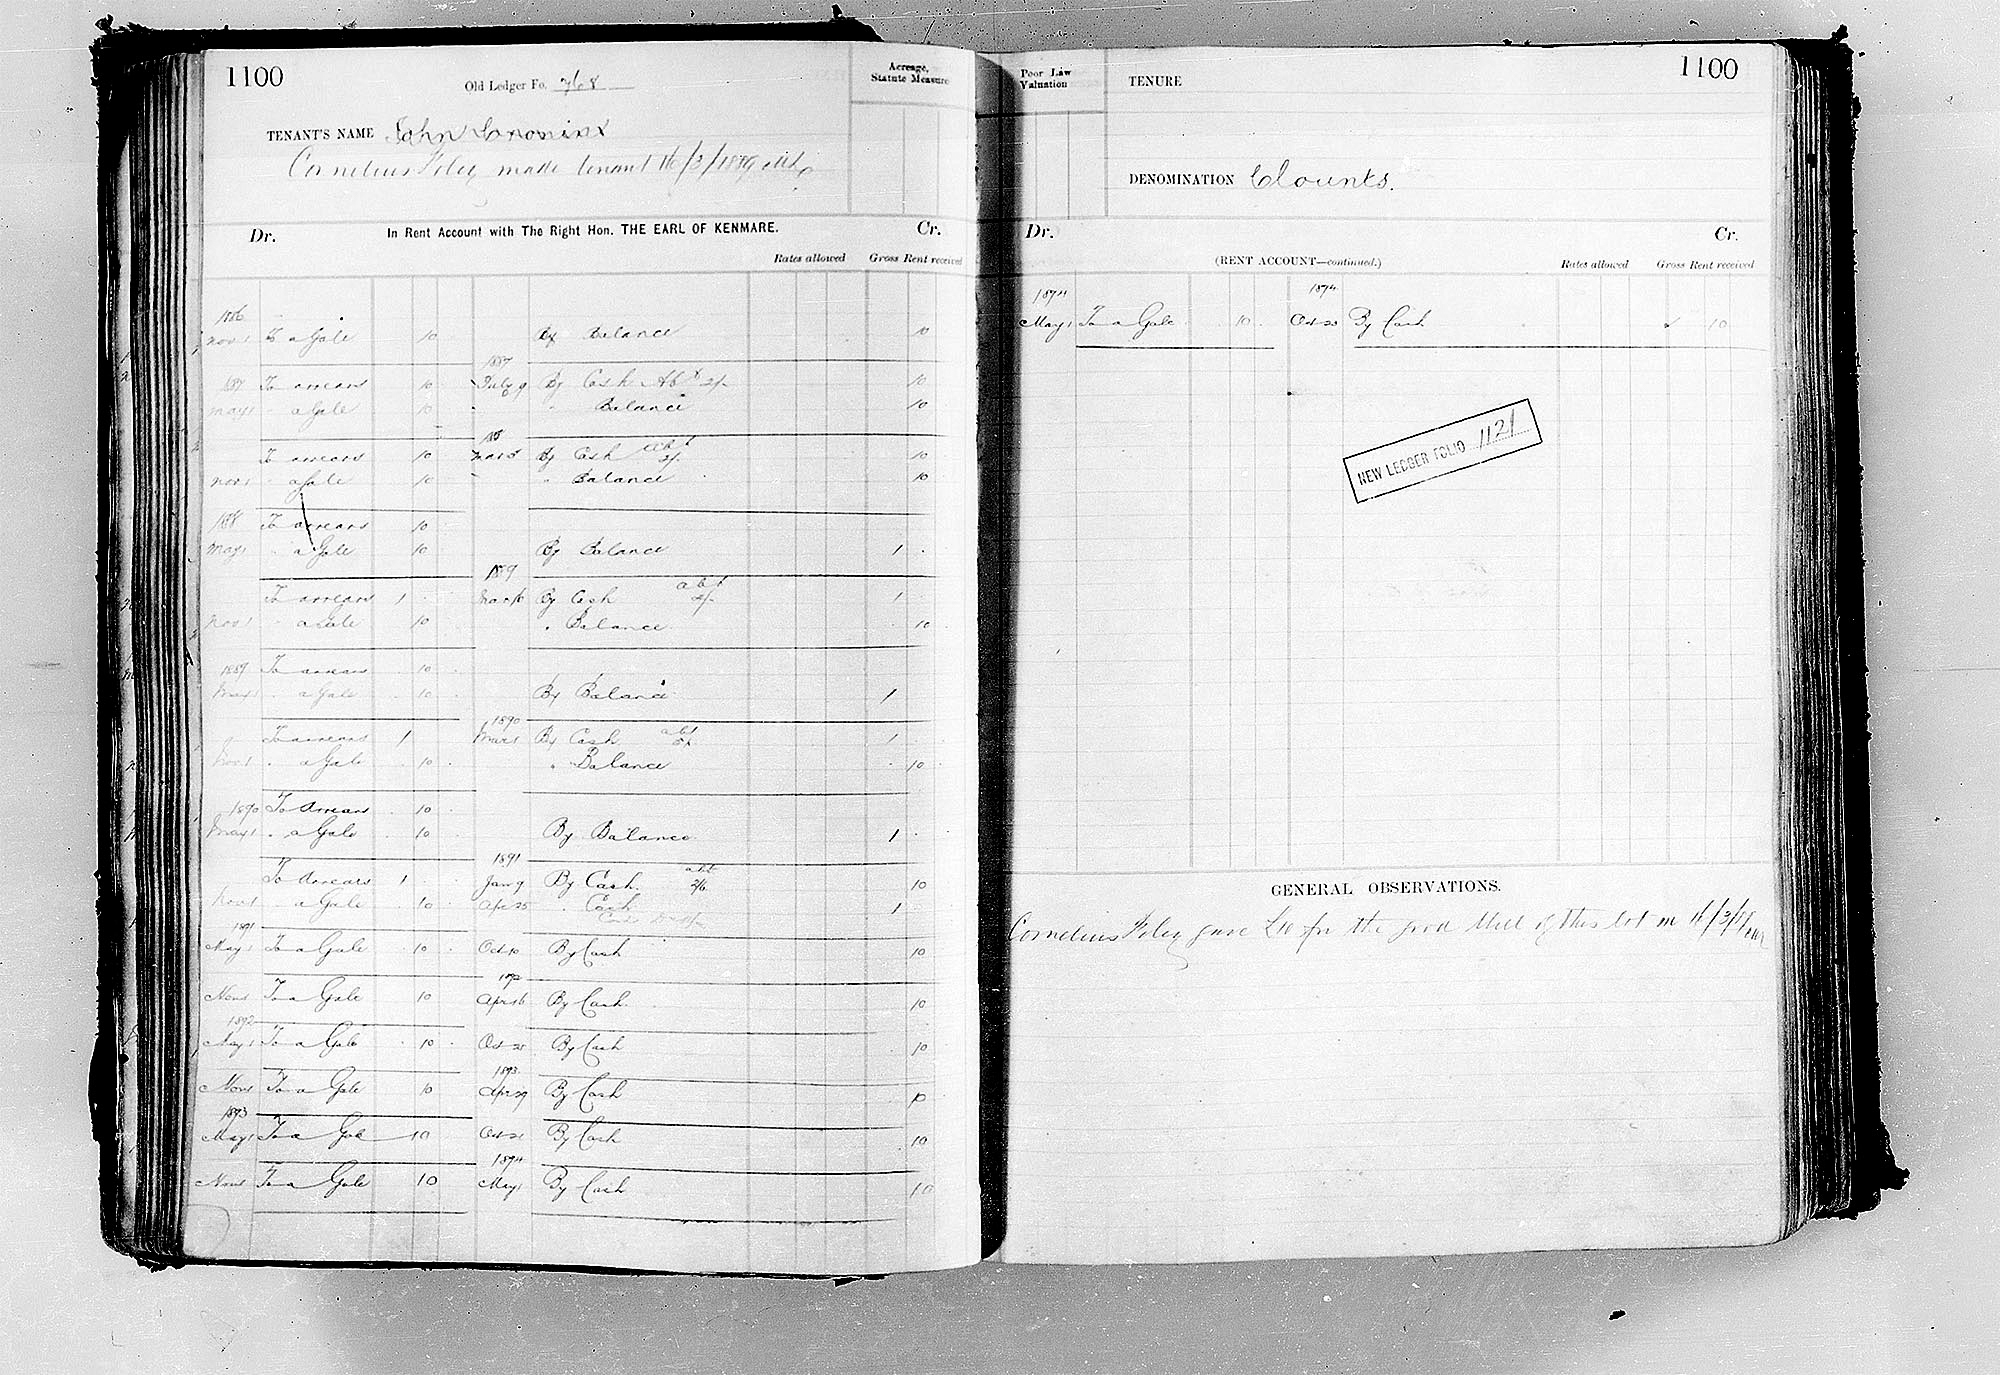 1100
Old Ledger Fo. 768
Acreage, Statute Measure
TENANT'S NAME John Cronin
Cornelius Foley made tenant 16/3/1889
Dr. In Rent Account with The Right Hon. THE EARL OF KENMARE. Cr.
Rates allowed Gross Rent received
1886
Nov 1 To a Gale 10 By Balance 10
1887
1887 To arrears 10 July 9 By Cash Abt 2/- 10
May 1 " a Gale 10 " Balance 10
188
To arrears 10 Mar 5 By Cash abt 2/- 10
Nov 1 " a Gale 10 " Balance 10
1888 To arrears 10
May 1 " a Gale 10 By Balance 1
1889
To arrears 1 Mar 16 By Cash abt 2/- 1
Nov 1 " a Gale 10 " Balance 10
1889 To arrears 10
May 1 " a Gale 10 By Balance 1
1890
To arrears 1 Mar 1 By Cash abt 1
Nov 1 " a Gale 10 " Balance 10
1890 To Arrears 10
May 1 " a Gale 10 By Balance 1
1891
To Arrears 1 Jan 9 By Cash abt 2/6 10
Nov 1 " a Gale 10 Apr 25 " Cash 1
1891
May 1 To a Gale 10 Oct 10 By Cash 10
1892
Nov 1 To a Gale 10 Apr 16 By Cash 10
1892
May 1 To a Gale 10 Oct 25 By Cash 10
1893
Nov 1 To a Gale 10 Apr 29 By Cash 10
1893
May 1 To a Gale 10 Oct 21 By Cash 10
1894
Nov 1 To a Gale 10 May 1 By Cash 10
Poor Law Valuation
TENURE
1100
DENOMINATION Clounts.
Dr. Cr.
(RENT ACCOUNT—continued.) Rates allowed Gross Rent received
1894 1894
May 1 To a Gale 10 Oct 20 By Cash 10
NEW LEDGER FOLIO 1121
GENERAL OBSERVATIONS.
Cornelius Foley gave £10 for the good Will of this lot on 16/3/89